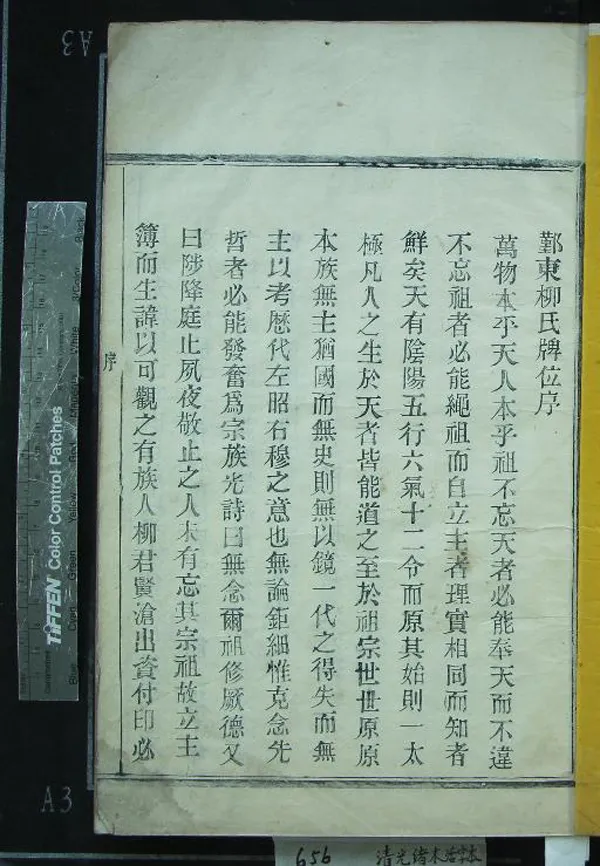 鄞東柳氏牌位序
萬物本乎天人本乎祖不忘天者必能奉天而不違
不忘祖者必能繩祖而自立主者理實相同而知者
鮮矣天有陰陽五行六氣十二令而原其始則一太
極凡人之生於天者皆能道之至於祖宗世世原原
本族無主猶國而無史則無以鏡一代之得失而無
主以考歷代左昭右穆之意也無論鉅細惟克念先
哲者必能發奮為宗族光詩曰無念爾祖修厥德又
曰陟降庭止夙夜敬止之人未有忘其宗祖故立主
簿而生諱以可觀之有族人柳君賢滄出資付印必
序
A3
A3
TIFFEN Color Control Patches
656
清光緒木活字本